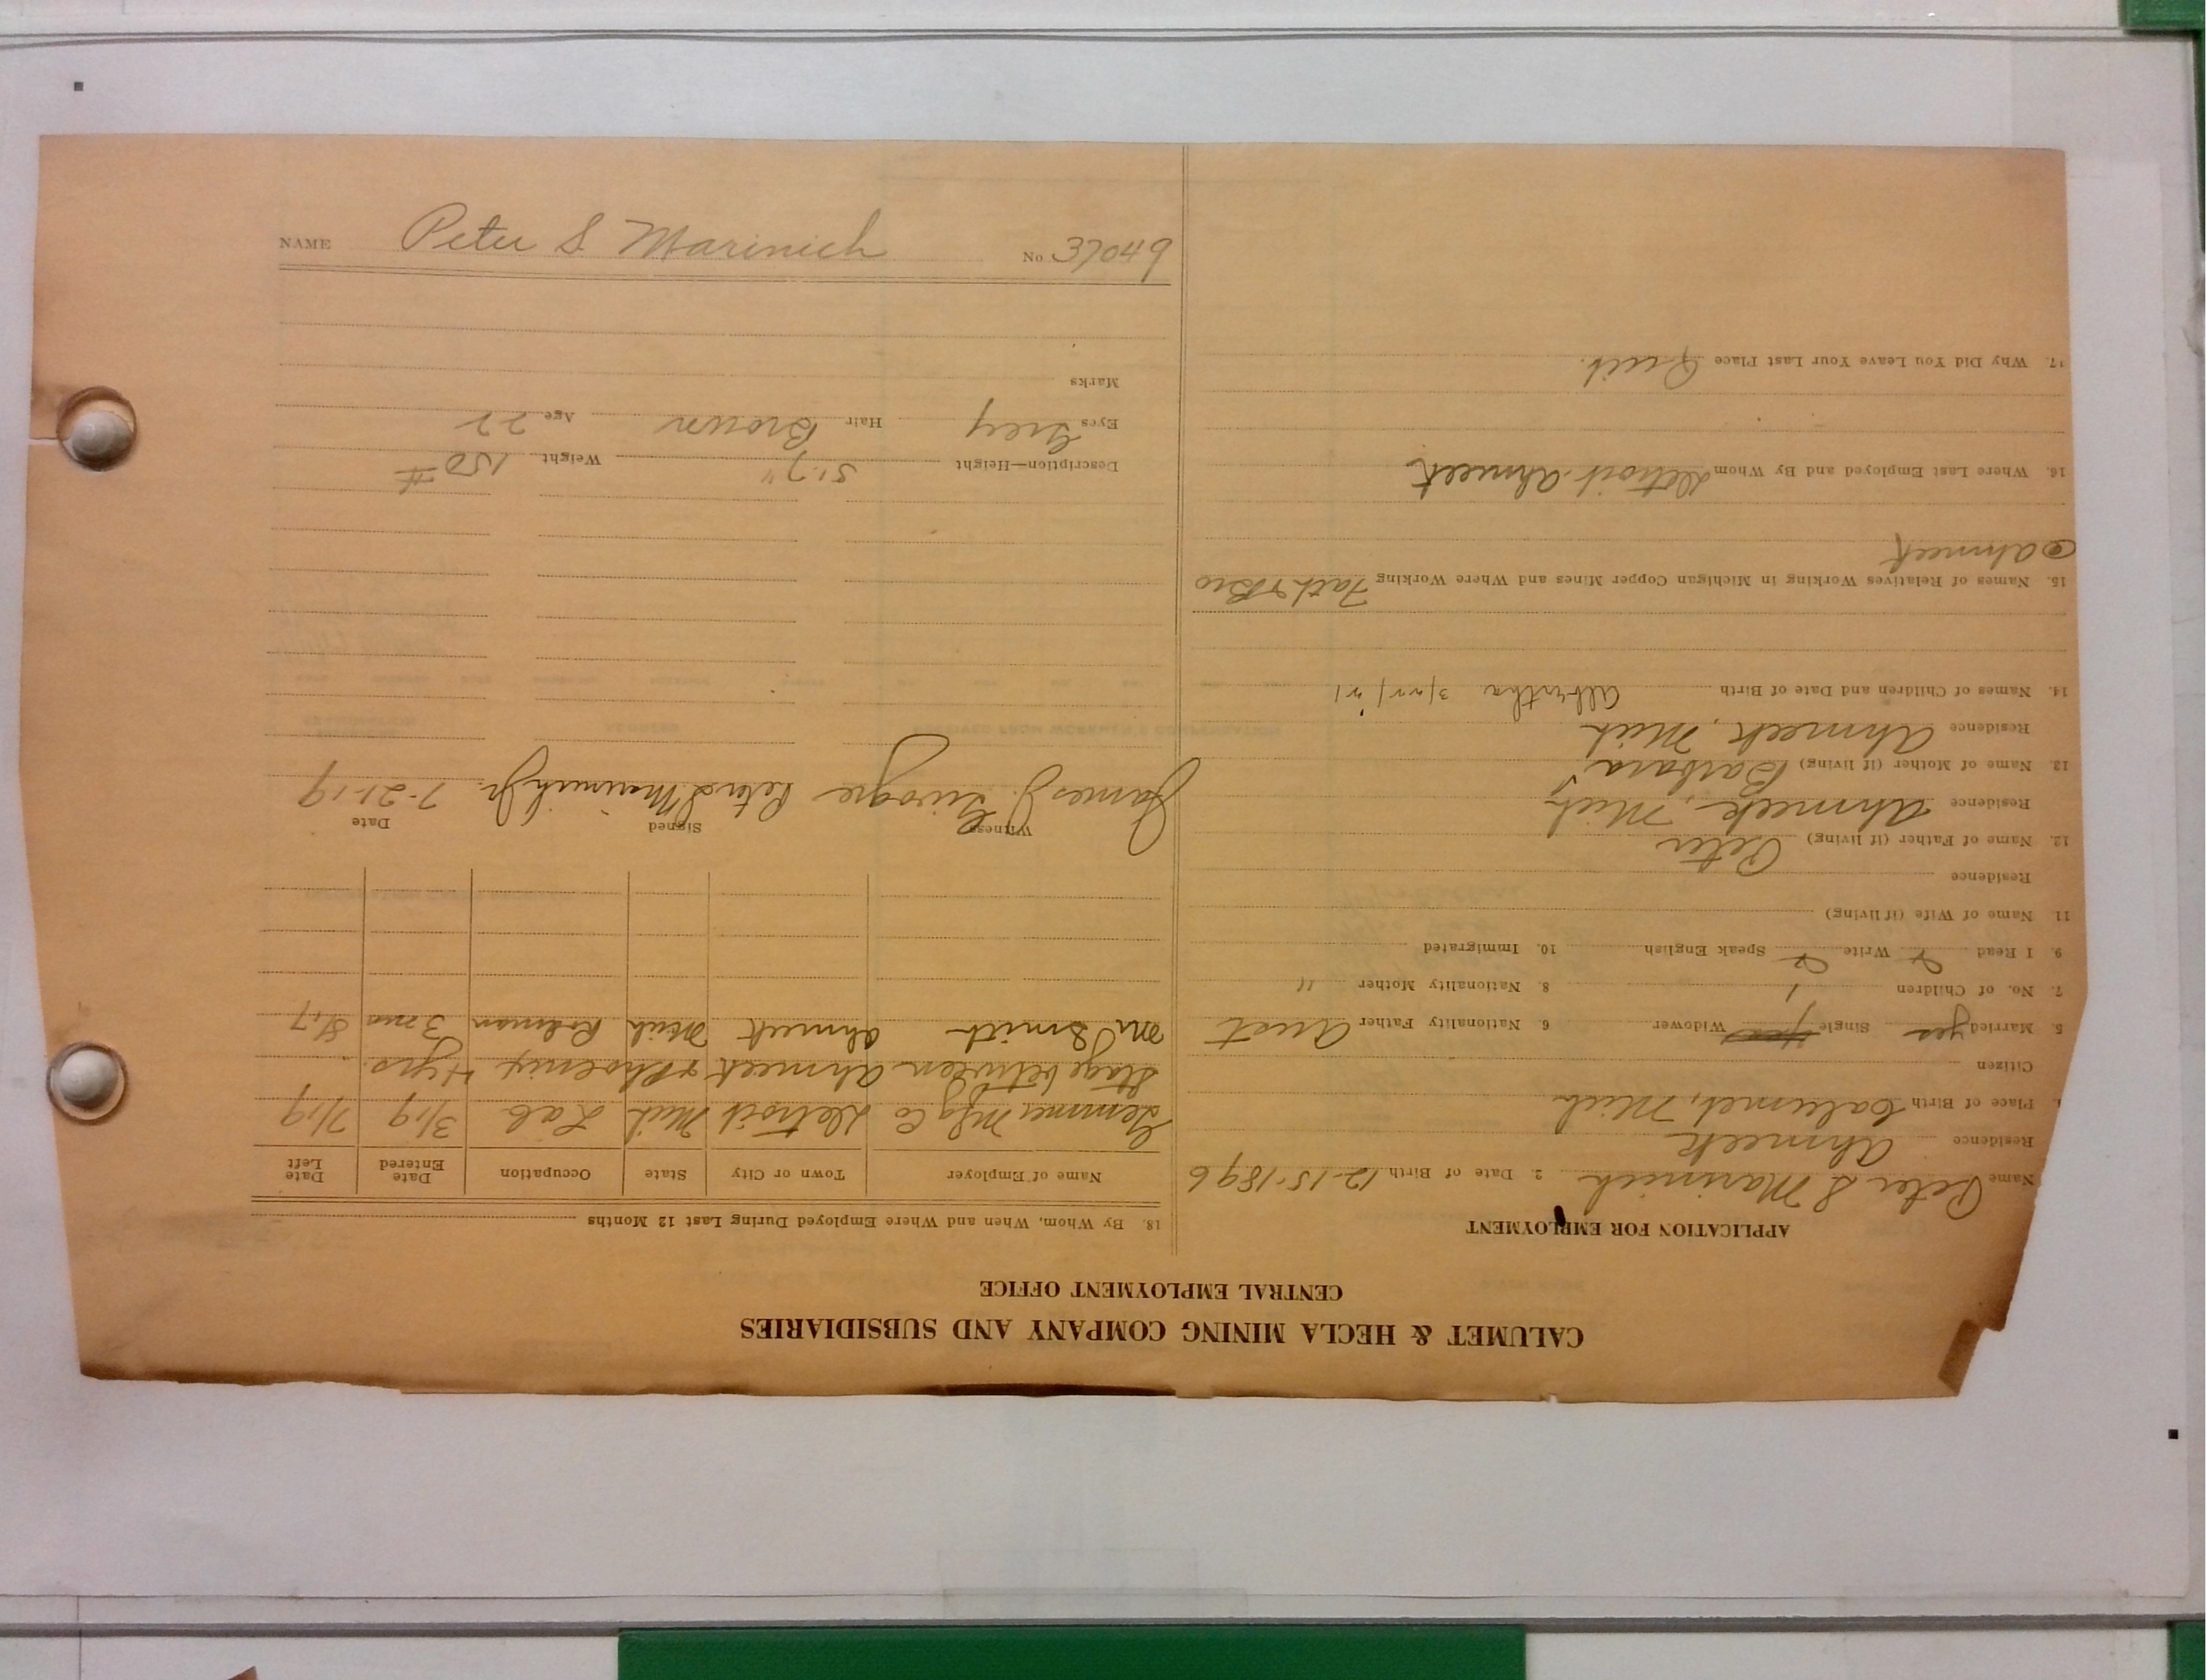 CALUMET & HECLA MINING COMPANY AND SUBSIDIARIES
CENTRAL EMPLOYMENT OFFICE
APPLICATION FOR EMPLOYMENT
Name Peter S Marinich 2. Date of Birth 12-15-1896
Residence Ahmeek
Place of Birth Calumet, Mich
Citizen
5. Married yes Single Widower 6. Nationality Father Aust
7. No. of Children 1 8. Nationality Mother "
9. I Read Write Speak English 10. Immigrated
11. Name of Wife (if living)
Residence
12. Name of Father (if living) Peter
Residence Ahmeek, Mich
13. Name of Mother (if living) Barbara
Residence Ahmeek, Mich
14. Names of Children and Date of Birth Albertha 3/22/21
15. Names of Relatives Working in Michigan Copper Mines and Where Working Fath & Bro
Ahmeek
16. Where Last Employed and By Whom Detroit-Ahmeek
17. Why Did You Leave Your Last Place Quit.
18. By Whom, When and Where Employed During Last 12 Months
Name of Employer Town or City State Occupation Date Entered Date Left
Gemmer Mfg Co Detroit Mich Lab 3/19 7/19
Stage between Ahmeek & Phoenix 4 yrs.
M Smith Ahmeek Mich 3 mo
Witness Signed Date
James J. Peter S Marinich Jr. 7-21-19
Description—Height 5'-7" Weight 150 #
Eyes Grey Hair Brown Age 22
Marks
NAME Peter S Marinich No 37049